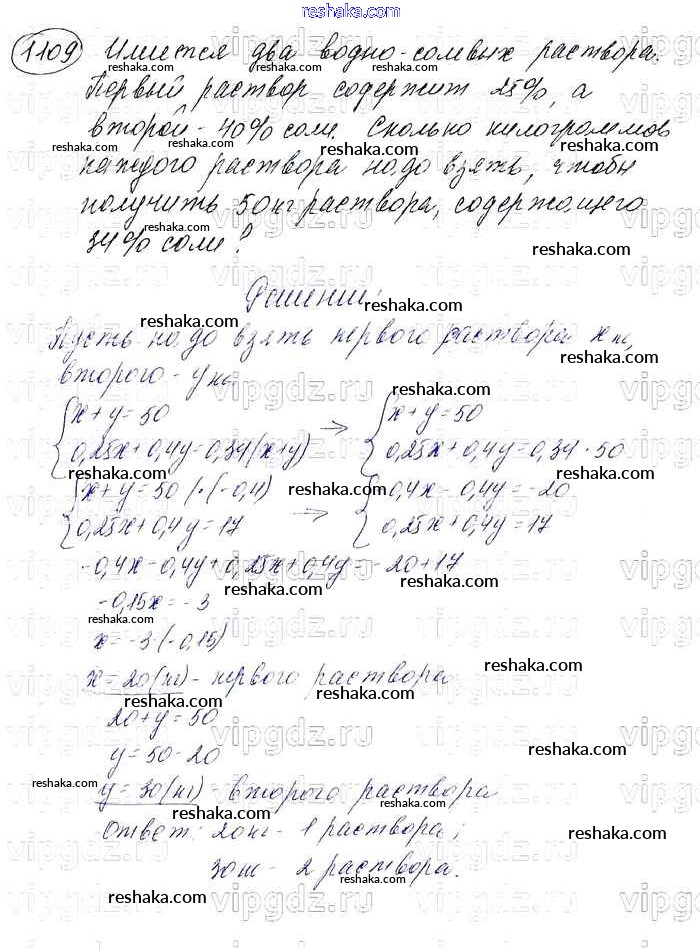 reshaka.com
1109 Имеется два водно-солевых раствора.
Первый раствор содержит 25%, а
второй - 40% соли. Сколько килограммов
каждого раствора надо взять, чтобы
получить 50 кг раствора, содержащего
34% соли?
Решение:
Пусть надо взять первого раствора x кг,
второго - y кг.
x+y=50 → x+y=50
0,25x+0,4y=0,34(x+y) 0,25x+0,4y=0,34·50
x+y=50 |·(-0,4) → -0,4x-0,4y=-20
0,25x+0,4y=17 0,25x+0,4y=17
-0,4x-0,4y+0,25x+0,4y=-20+17
-0,15x=-3
x=-3:(-0,15)
x=20(кг)- первого раствора
20+y=50
y=50-20
y=30(кг)- второго раствора
Ответ: 20кг- 1 раствора;
30кг- 2 раствора.